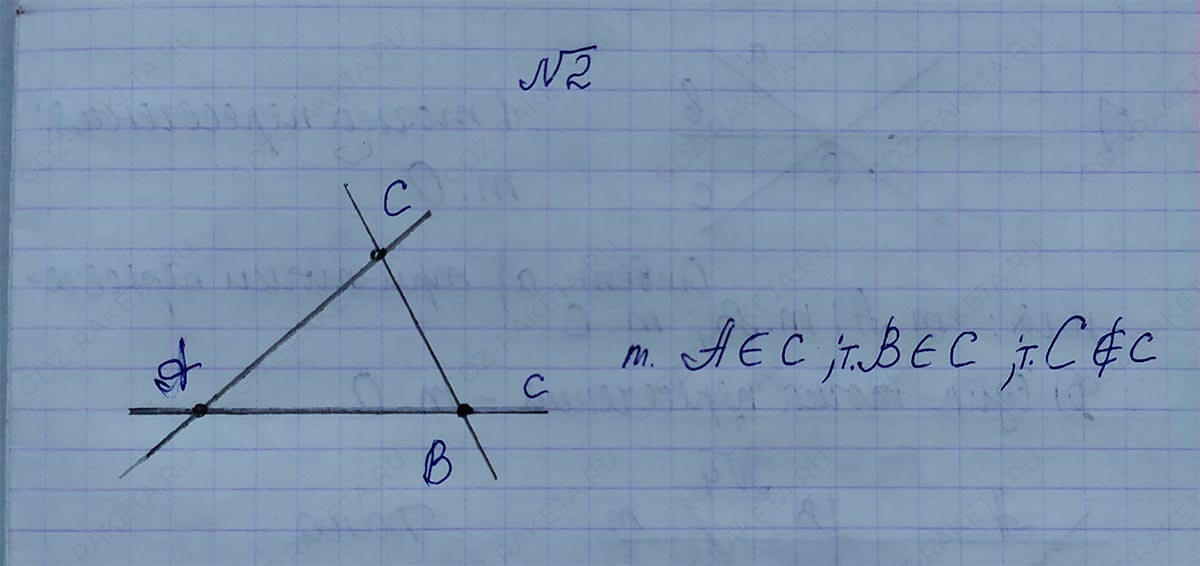 №2
C
A
т. A ∈ C ; т. B ∈ C ; т. C ∉ C
c
B
GDZ-RAKETA.RU